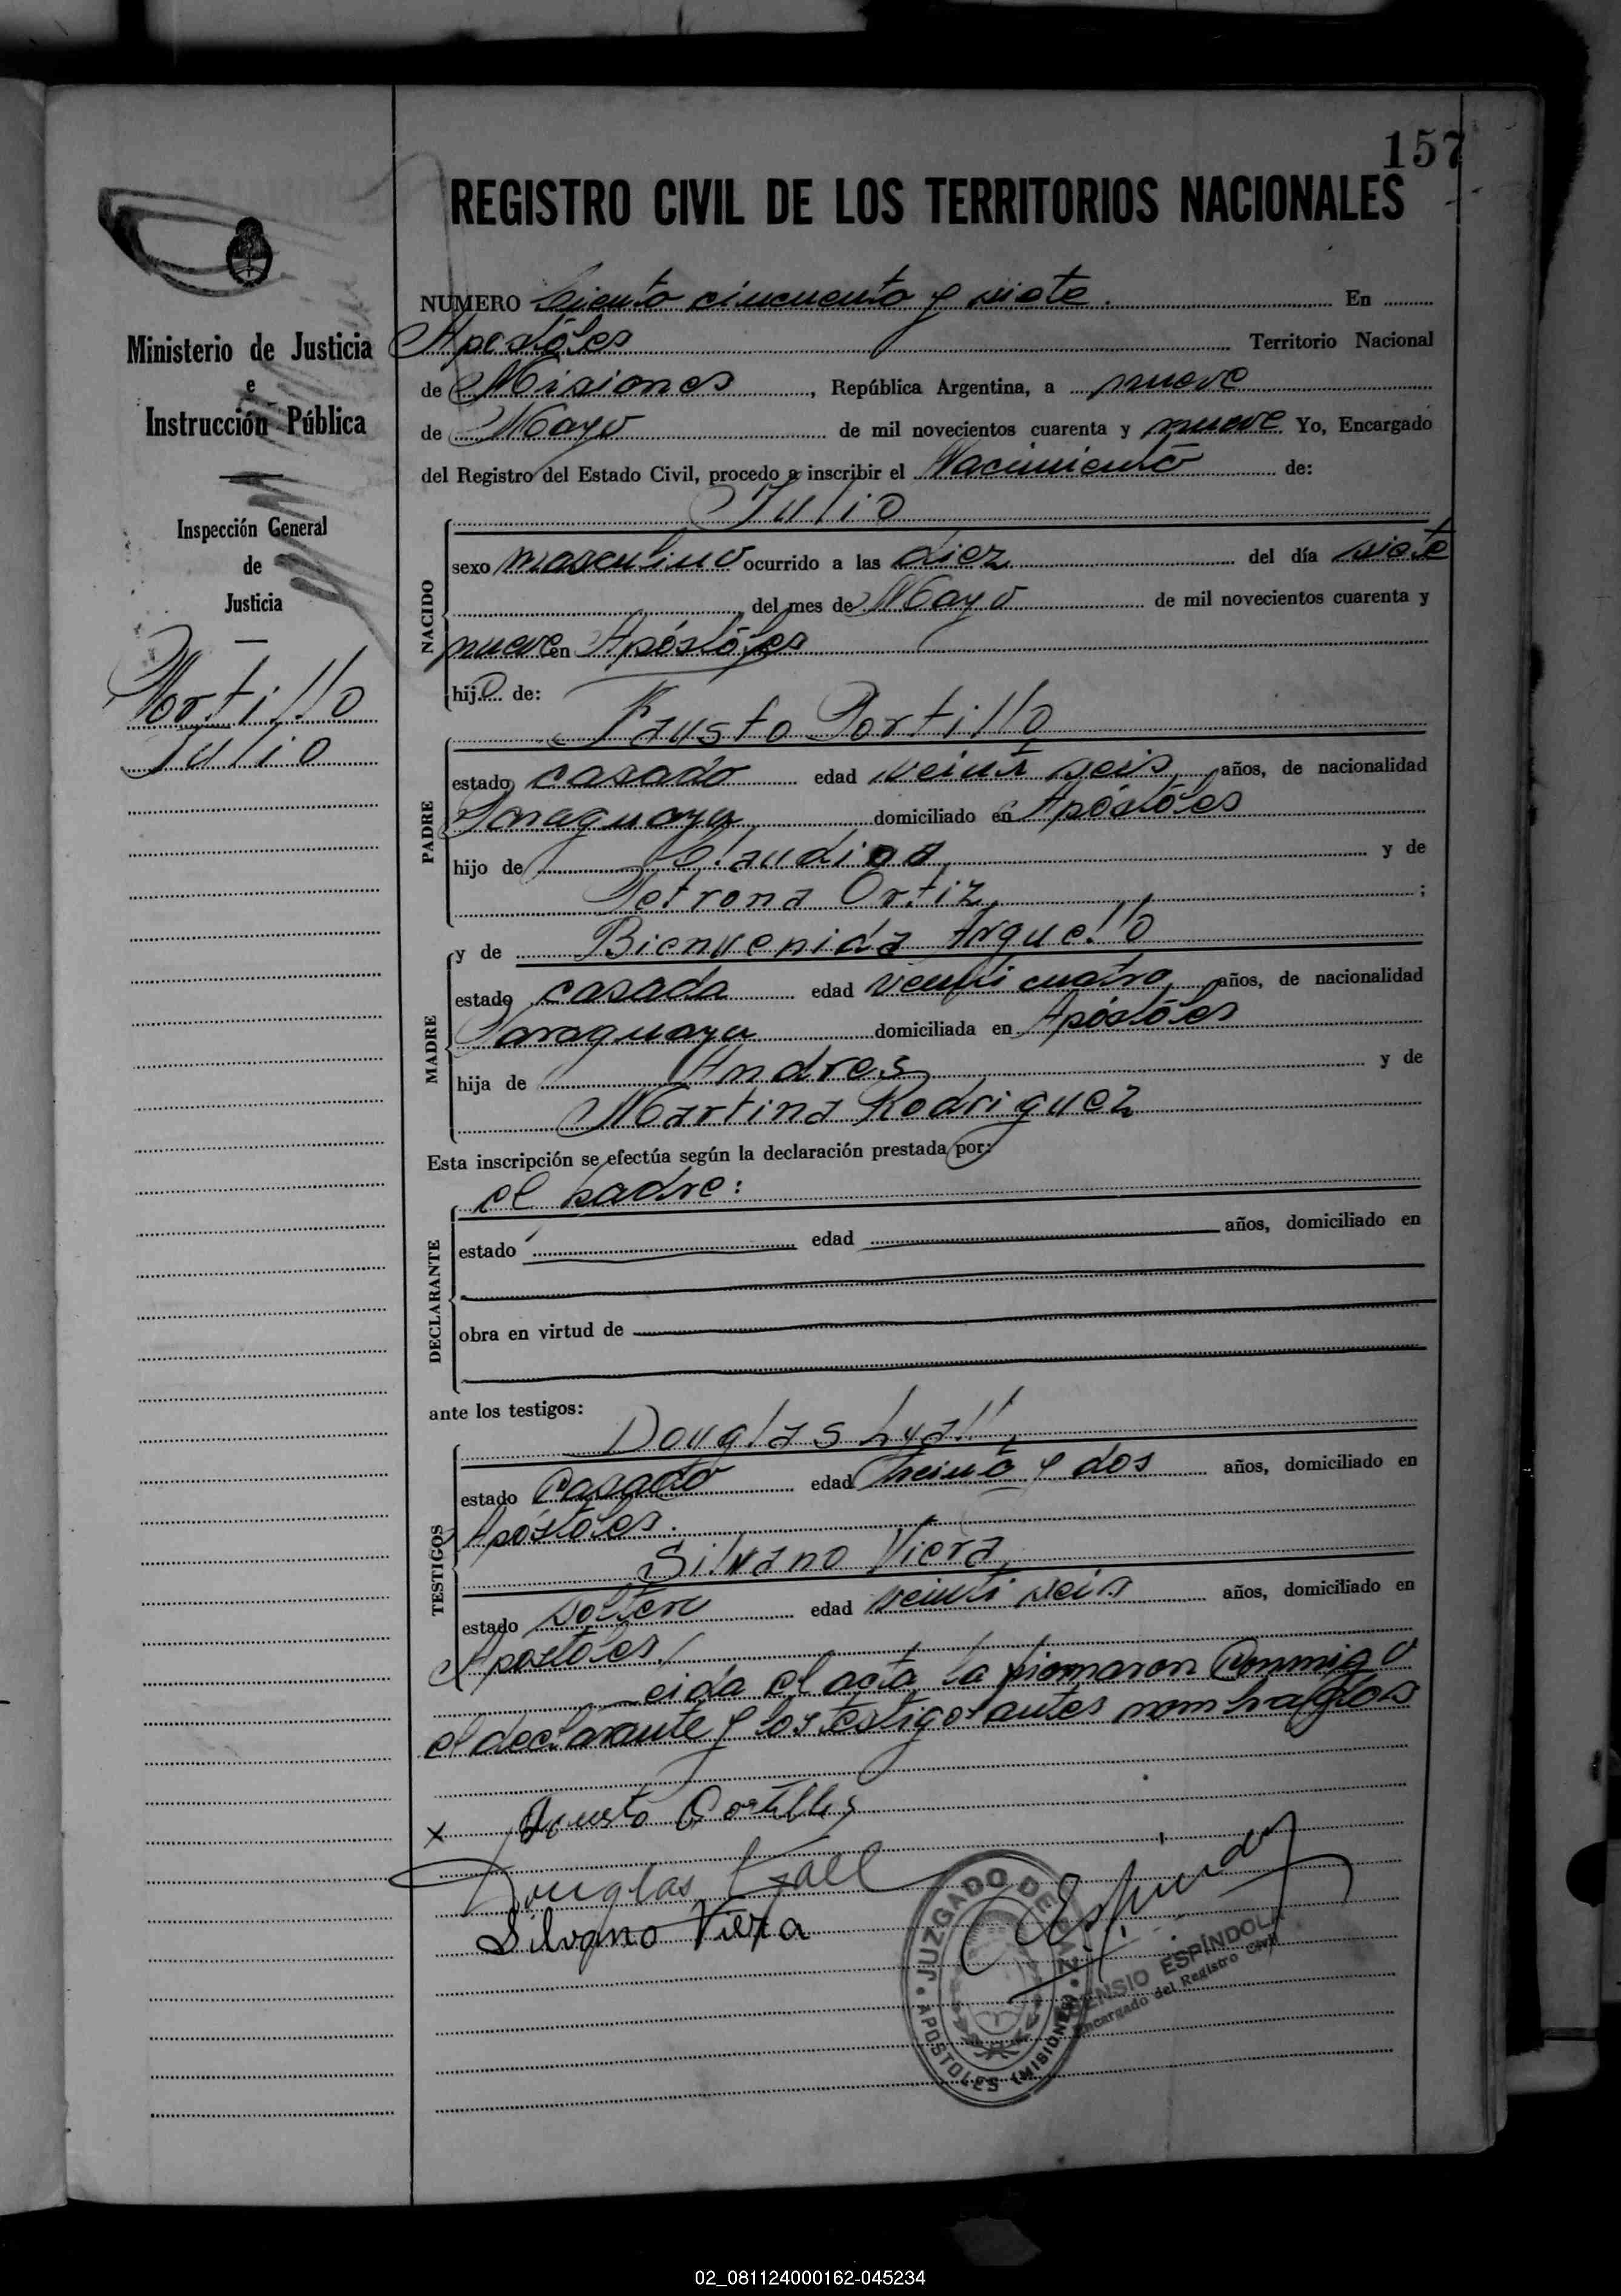 157
REGISTRO CIVIL DE LOS TERRITORIOS NACIONALES
Ministerio de Justicia
e
Instrucción Pública
Inspección General
de
Justicia
Portillo
Julio
NUMERO Ciento cincuenta y siete. En
Apostóles Territorio Nacional
de Misiones, República Argentina, a nueve
de Mayo de mil novecientos cuarenta y nueve Yo, Encargado
del Registro del Estado Civil, procedo a inscribir el Nacimiento de:
Julio
NACIDO
sexo masculino ocurrido a las diez del día siete
del mes de Mayo de mil novecientos cuarenta y
nueve en Apóstóles
hijo de:
Fausto Portillo
PADRE
estado casado edad veinti seis años, de nacionalidad
Paraguaya domiciliado en Apóstóles
hijo de y de
Petrona Ortiz ;
y de Bienvenida Arguello
MADRE
estado casada edad veinti cuatro años, de nacionalidad
Paraguaya domiciliada en Apóstóles
hija de Andres y de
Martina Rodriguez
Esta inscripción se efectúa según la declaración prestada por:
el padre:
DECLARANTE
estado edad años, domiciliado en
obra en virtud de
ante los testigos:
Douglas Lyall
TESTIGOS
estado Casado edad treinta y dos años, domiciliado en
Apóstóles.
Silvano Viera
estado soltero edad veinti seis años, domiciliado en
Apostóles
Leida el acta la firmaron conmigo
el declarante y los testigos antes nombrados
x Fausto Portillo
Douglas Lyall
Silvano Viera
JUZGADO DE PAZ
APOSTOLES (MISIONES)
ASENSIO ESPÍNDOLA
Encargado del Registro Civil
02_081124000162-045234